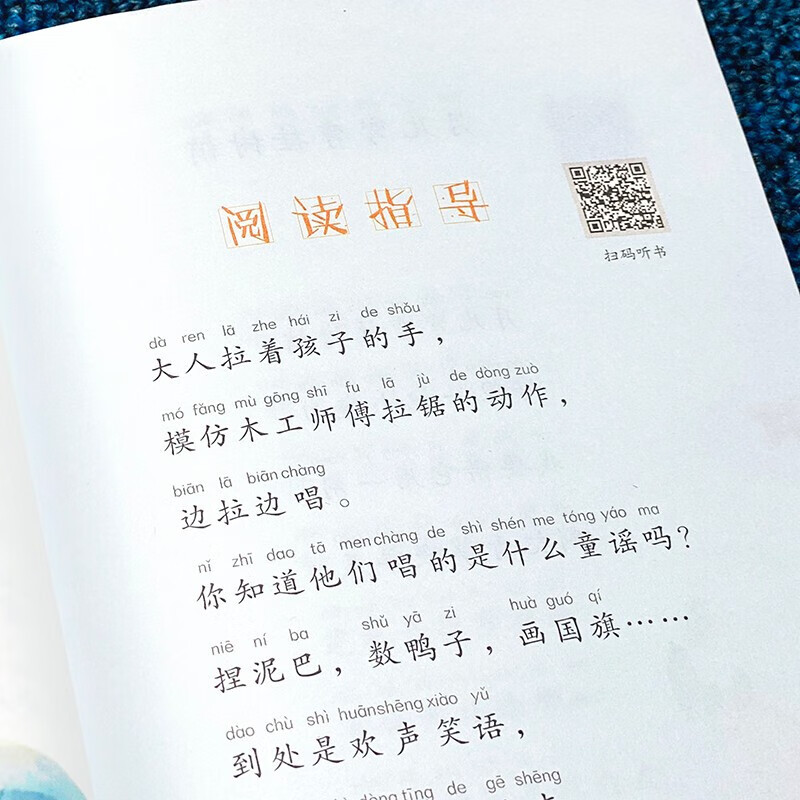 阅读指导
扫码听书
dà ren lā zhe hái zi de shǒu
大人拉着孩子的手，
mó fǎng mù gōng shī fu lā jù de dòng zuò
模仿木工师傅拉锯的动作，
biān lā biān chàng
边拉边唱。
nǐ zhī dao tā men chàng de shì shén me tóng yáo ma
你知道他们唱的是什么童谣吗？
niē ní ba shǔ yā zi huà guó qí
捏泥巴，数鸭子，画国旗……
dào chù shì huān shēng xiào yǔ
到处是欢声笑语，
dòng tīng de gē shēng